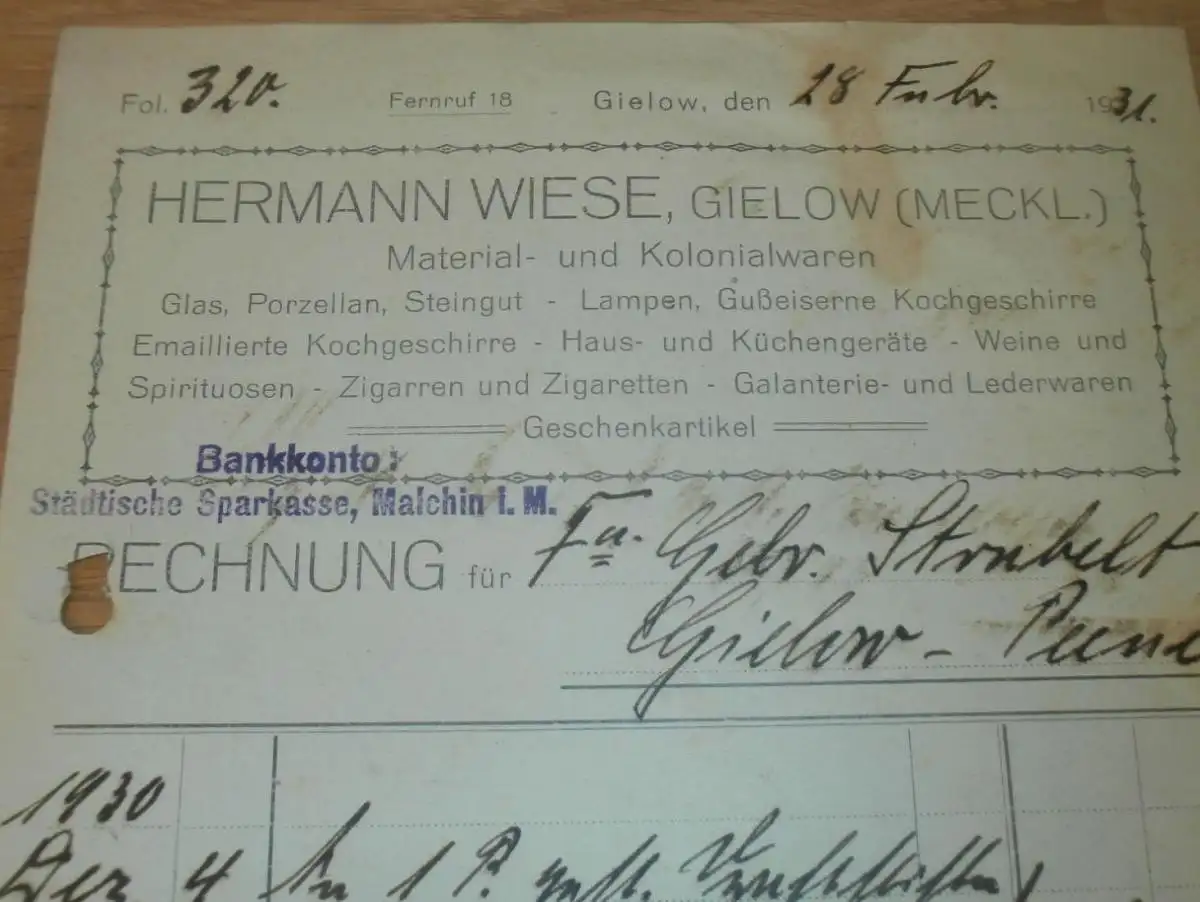 Fol. 320. Fernruf 18 Gielow, den 28 Febr. 1931.
HERMANN WIESE, GIELOW (MECKL.)
Material- und Kolonialwaren
Glas, Porzellan, Steingut - Lampen, Gußeiserne Kochgeschirre
Emaillierte Kochgeschirre - Haus- und Küchengeräte - Weine und
Spirituosen - Zigarren und Zigaretten - Galanterie- und Lederwaren
Geschenkartikel
Bankkonto:
Städtische Sparkasse, Malchin i. M.
RECHNUNG für Fa. Gebr. Strubelt
Gielow-
1930
Dez 4 An 1 P.